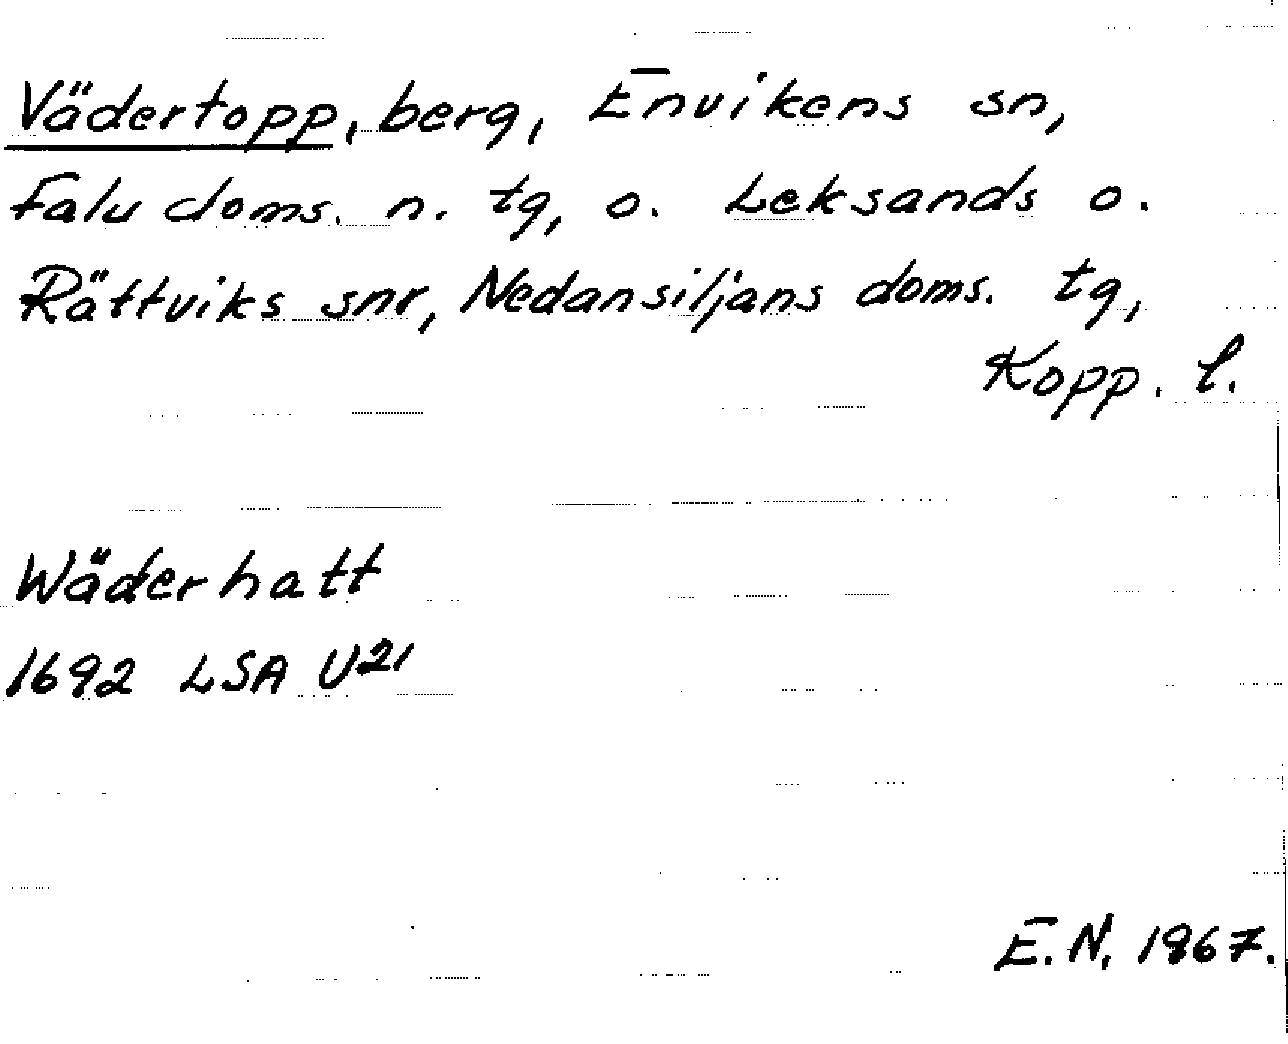 Vädertopp, berg, Envikens sn,
Falu doms. n. tg, o. Leksands o.
Rättviks snr, Nedansiljans doms. tg,
Kopp. l.
Wäderhatt
1692 LSA U21
E.N. 1967.